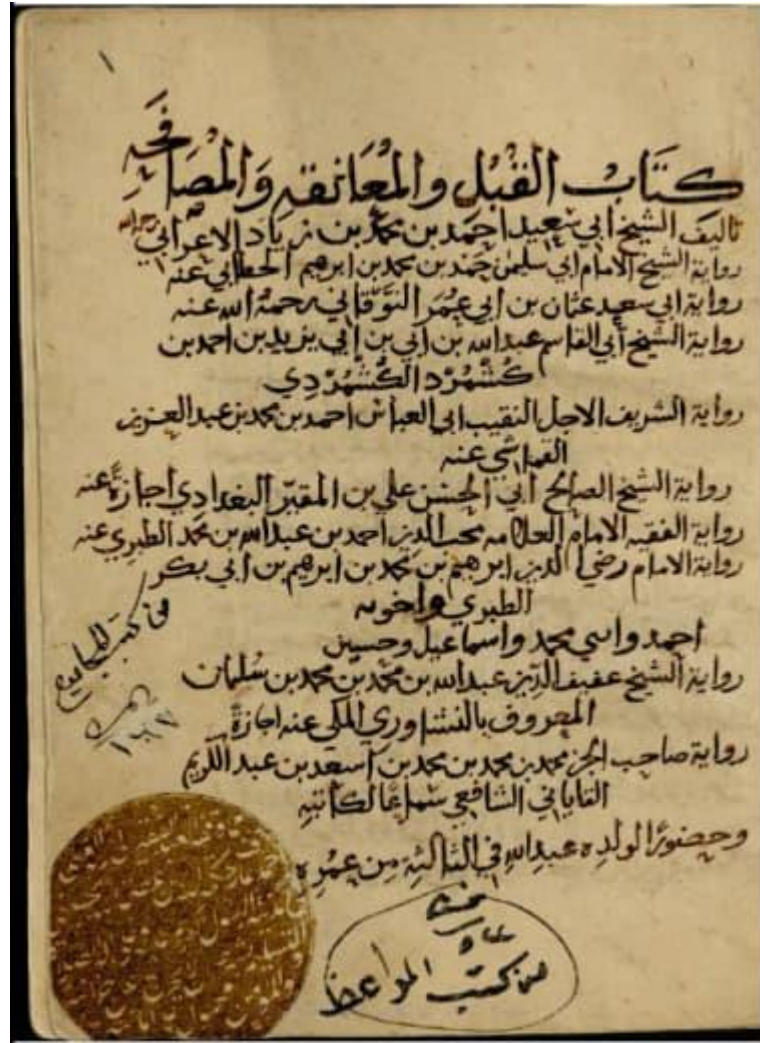 ١
كتاب القبل والمعانقة والمصافحة
تاليف الشيخ ابي سعيد احمد بن محمد بن زياد الاعرابي رحمه الله
رواية الشيخ الامام ابي سليمن حمد بن محمد بن ابرهيم الخطابي عنه
رواية ابي سعيد عثمان بن ابي عمر النوقاني رحمة الله عنه
رواية الشيخ أبي القاسم عبد الله بن أبي بن إبي يزيد بن احمد بن
كشمرد الكشمردي
رواية الشريف الاجل النقيب ابي العباس احمد بن محمد بن عبد العزيز
عنه
رواية الشيخ الصالح أبي الحسن علي بن المقير البغدادي اجازةً عنه
رواية الفقيه الامام العلامه محب الدين احمد بن عبد الله بن محمد الطبري عنه
رواية الامام رضي الدين ابرهيم بن محمد بن ابرهيم بن أبي بكر
الطبري واخويه
احمد واسي محمد واسماعيل وحسين
رواية الشيخ عفيف الدين عبد الله بن محمد بن محمد بن سُلمان
المعروف بالنشاوري المكي عنه اجازةً
رواية صاحب الجزء محمد بن محمد بن محمد بن أسعد بن عبد الكريم
القاياتي الشافعي سماعًا لكاتبه
وحضورًا لولده عبد الله في الثالثة من عمره
من كتب
من كتب المواعظ